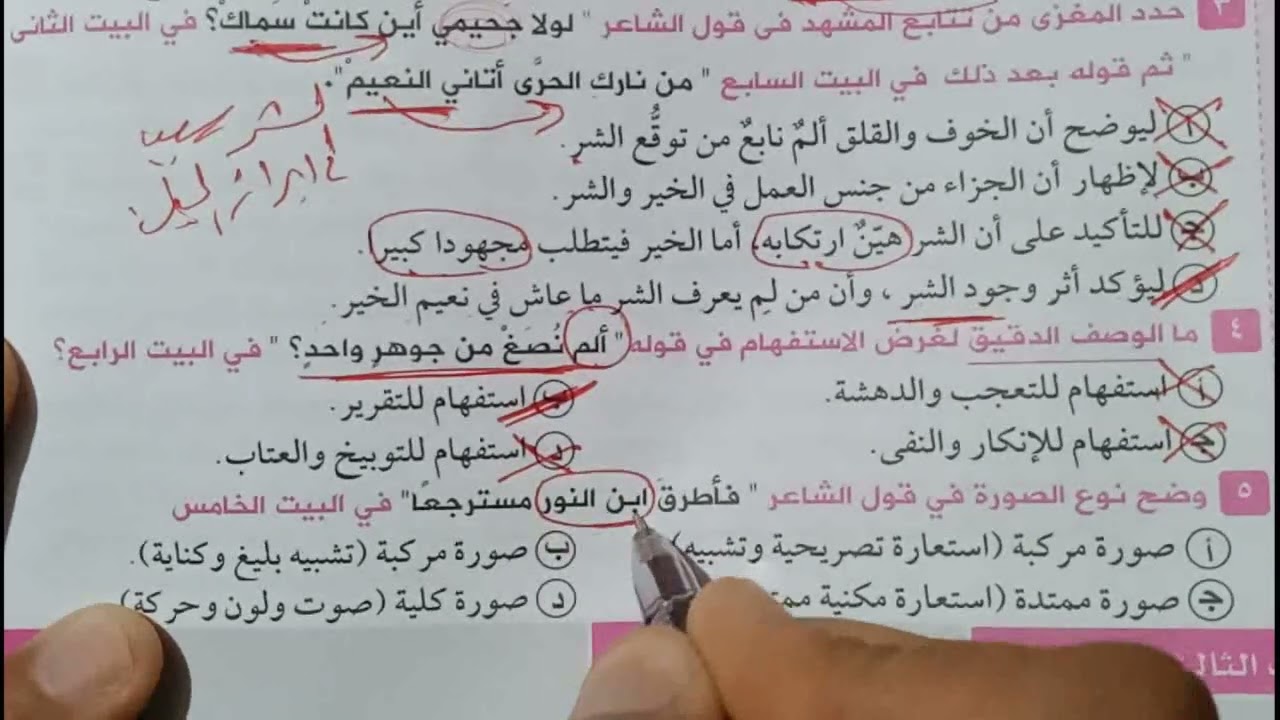 ٣ حدد المغزى من تتابع المشهد فى قول الشاعر " لولا جَحيمي أين كانتْ سَماكْ؟ في البيت الثانى
" ثم قوله بعد ذلك في البيت السابع " من نارك الحرَّى أتاني النعيمْ".
أ ليوضح أن الخوف والقلق ألمٌ نابعٌ من توقُّع الشر.
ب لإظهار أن الجزاء من جنس العمل في الخير والشر.
ج للتأكيد على أن الشر هيّنٌ ارتكابه، أما الخير فيتطلب مجهودا كبير.
د ليؤكد أثر وجود الشر، وأن من لم يعرف الشر ما عاش في نعيم الخير.
الشر
في إبراز
٤ ما الوصف الدقيق لغرض الاستفهام في قوله " ألم نُصَغْ من جوهرٍ واحدٍ؟ " في البيت الرابع؟
أ استفهام للتعجب والدهشة. ب استفهام للتقرير.
ج استفهام للإنكار والنفى. د استفهام للتوبيخ والعتاب.
٥ وضح نوع الصورة في قول الشاعر " فأطرقَ ابن النور مسترجعًا" في البيت الخامس
أ صورة مركبة (استعارة تصريحية وتشبيه) ب صورة مركبة (تشبيه بليغ وكناية).
ج صورة ممتدة (استعارة مكنية د صورة كلية (صوت ولون وحركة)